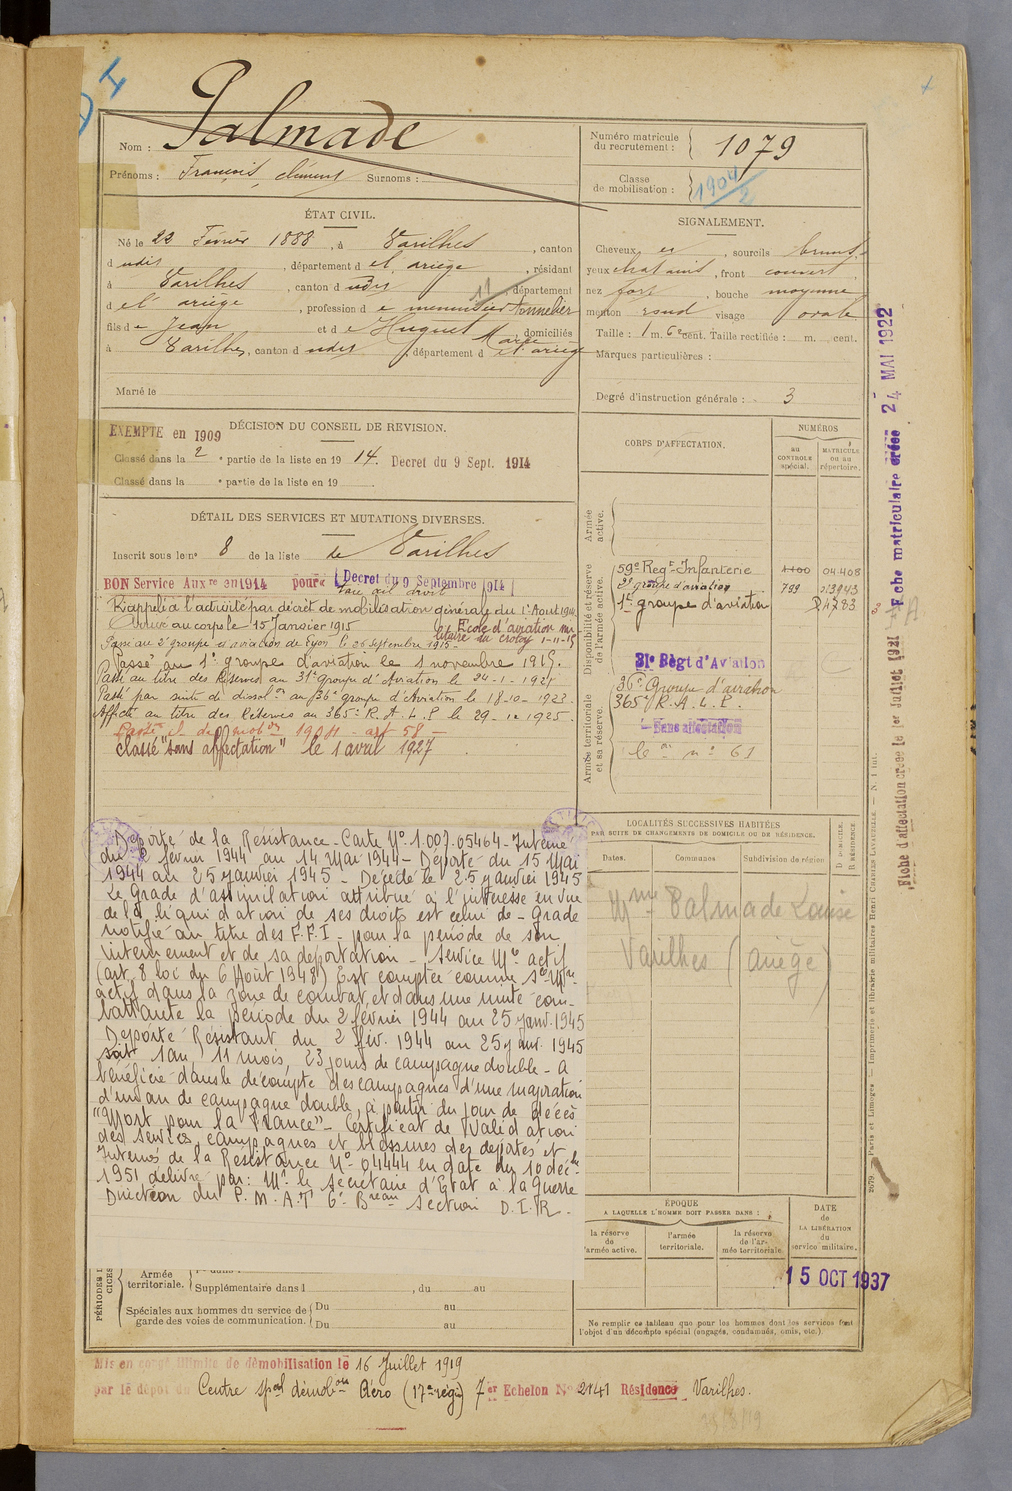 Palmade
Nom :
Prénoms : François, Clément Surnoms :
Numéro matricule du recrutement : 1079
Classe de mobilisation : 1904/2
ÉTAT CIVIL.
Né le 23 Février 1888, à Varilhes, canton
d udit, département d e l'ariège, résidant
à Varilhes, canton d udit, département
d e l'ariège, profession d e menuisier tonnelier
fils d e Jean et d e Huguet Marie domiciliés
à Varilhes, canton d udit, département d e l'ariège
Marié le
SIGNALEMENT.
Cheveux et, sourcils bruns,
yeux chatains, front couvert,
nez fort, bouche moyenne
menton rond visage ovale
Taille : 1 m. 62 cent. Taille rectifiée : m. cent.
Marques particulières :
Degré d'instruction générale : 3
DÉCISION DU CONSEIL DE REVISION.
EXEMPTÉ en 1909
Classé dans la 2e partie de la liste en 1914. Decret du 9 Sept. 1914
Classé dans la e partie de la liste en 19
DÉTAIL DES SERVICES ET MUTATIONS DIVERSES.
Inscrit sous le no 8 de la liste de Varilhes
BON Service Auxre en 1914 pour (Decret du 9 Septembre 1914)
taie œil droit
Rappelé à l'activité par décret de mobilisation générale du 1er Aout 1914
Arrivé au corps le 15 Janvier 1915
à l'Ecole d'aviation militaire du Crotoy 1-11-15
Passé au 2e groupe d'aviation de Lyon le 26 Septembre 1915-
Passé au 1er groupe d'aviation le 1 novembre 1915.
Passé au titre des Réserves au 31e groupe d'Aviation le 24-1-1921
Passé par suite de dissolon au 36e groupe d'Aviation le 18-10-1923
Affecté au titre des Réserves au 365e R.A.L.P. le 29-12-1925.
Passé cl. de mobon 1904 - art 58 -
Classé "sans affectation" le 1 avril 1927
CORPS D'AFFECTATION.
NUMÉROS
au CONTROLE spécial.
MATRICULE ou au répertoire.
Armée active.
Disponibilité et réserve de l'armée active.
59e Regt Infanterie 1100 04.408
2e groupe d'aviation 799
1er groupe d'aviation
31e Régt d'Aviation
Armée territoriale et sa réserve.
36e Groupe d'aviation
365e R.A.L.P.
Sans affectation
le no 61
Déporté de la Résistance - Carte No 1.007.05464 - Interné
du 2 février 1944 au 14 Mai 1944 - Déporté du 15 Mai
1944 au 25 janvier 1945 - Décédé le 25 janvier 1945
Le grade d'assimilation attribué à l'intéressé en vue
de la liquidation de ses droits est celui de - grade
notifié au titre des F.F.I - pour la période de son
internement et de sa déportation - Service Mre actif
(art 8 loi du 6 Août 1948) Est comptée comme sce Mre
actif dans la zone de combat, et dans une unité com-
battante la période du 2 février 1944 au 25 janv. 1945
Déporté Résistant du 2 fév. 1944 au 25 janv. 1945
soit 1 an, 11 mois, 23 jours de campagne double - A
bénéficié dans le décompte des campagnes d'une majoration
d'un an de campagne double, à partir du jour de décès
"Mort pour la France" - Certificat de Validation
des services, campagnes et blessures des déportés et
Internés de la Résistance No 04444 en date du 10 déc.bre
1951 délivré par : Mr le Secrétaire d'Etat à la Guerre
Direction du P.M.A.T 6e Breau section D.I.R.
LOCALITÉS SUCCESSIVES HABITÉES
PAR SUITE DE CHANGEMENTS DE DOMICILE OU DE RÉSIDENCE.
Dates.
Communes
Subdivision de région
D DOMICILE. R RÉSIDENCE
Mme Palmade Louise
Varilhes (ariège)
ÉPOQUE
A LAQUELLE L'HOMME DOIT PASSER DANS :
la réserve de l'armée active.
l'armée territoriale.
la réserve de l'armée territoriale.
DATE de LA LIBÉRATION du service militaire.
15 OCT 1937
Armée territoriale.
Supplémentaire dans l , du au
Spéciales aux hommes du service de garde des voies de communication.
Du au
Du au
Ne remplir ce tableau que pour les hommes dont les services font
l'objet d'un décompte spécial (engagés, condamnés, omis, etc.)
Mis en congé illimité de démobilisation le 16 Juillet 1919
par le dépôt du Centre spal démobon Aéro (17e région) 7er Echelon No 2141 Résidence Varilhes.
Fiche matriculaire créée 24 MAI 1922
Fiche d'affectation créée le 1er Juillet 1921
2079. — Paris et Limoges. — Imprimerie et librairie militaires Henri CHARLES-LAVAUZELLE. — N. 1 int.